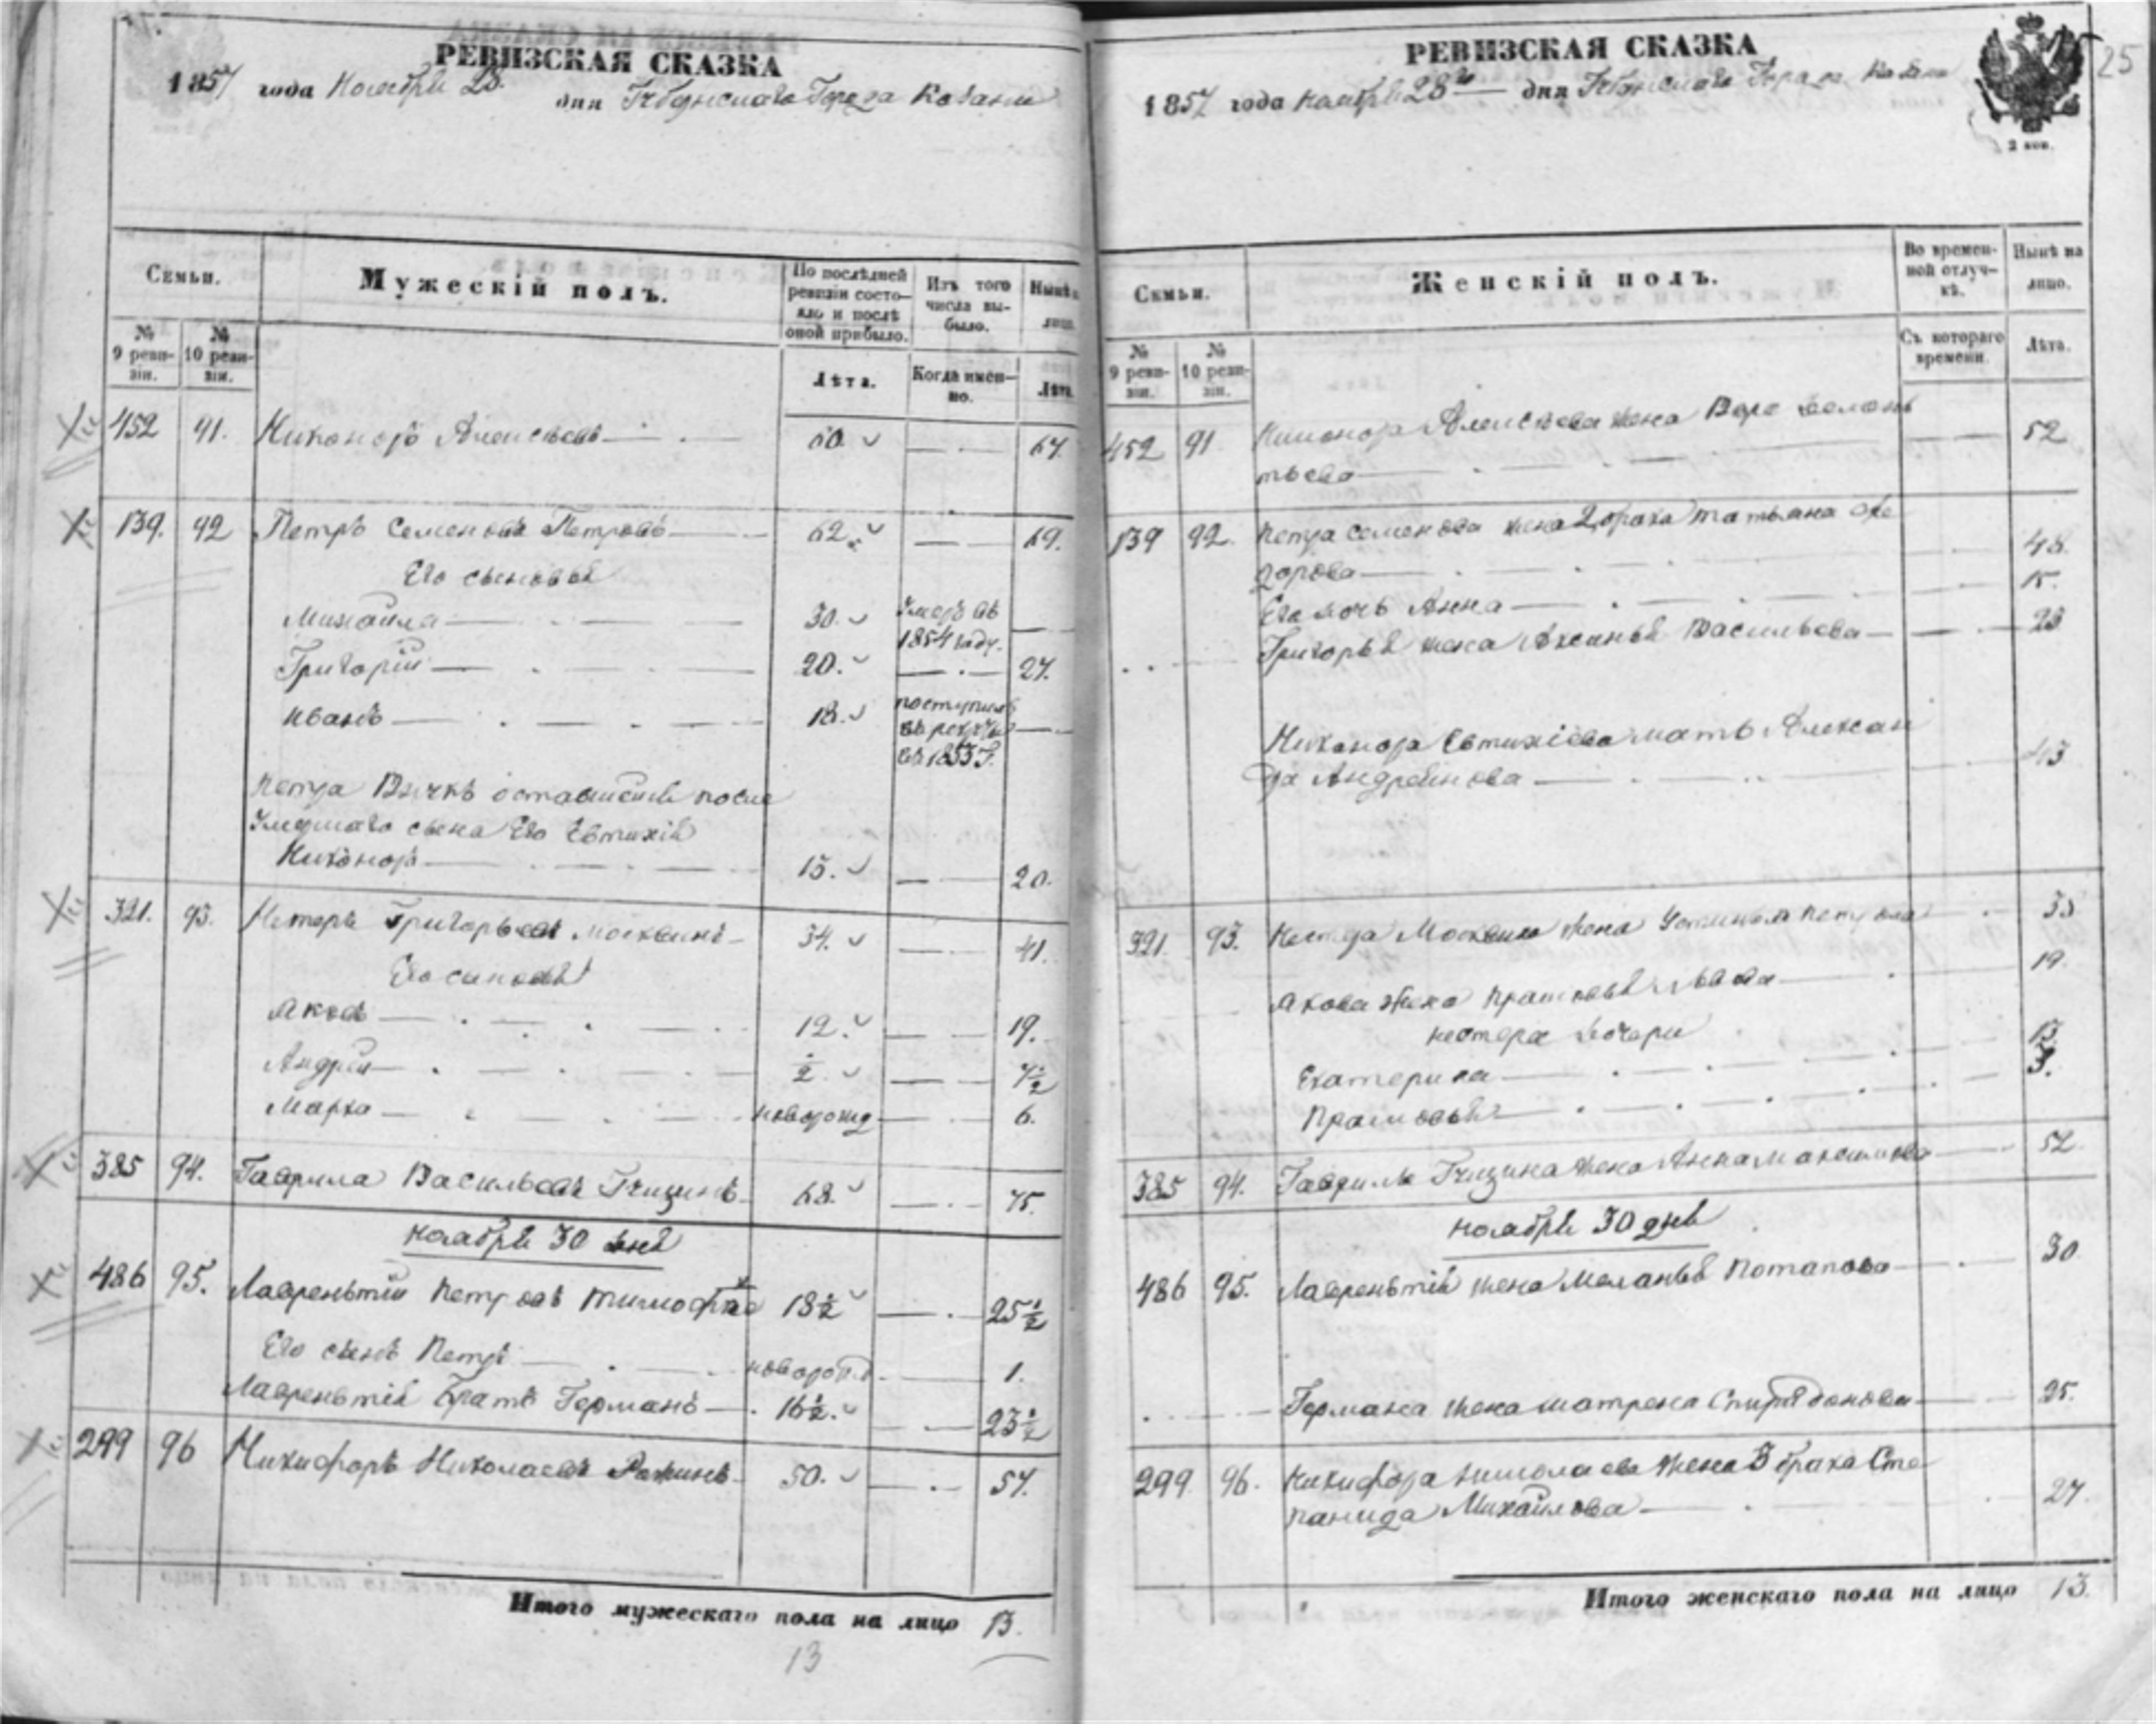 РЕВИЗСКАЯ СКАЗКА
1857 года Ноября 28. дня Губернскаго Города Казани
Семьи.
Мужескій полъ.
По послѣдней ревизіи состояло и послѣ оной прибыло.
Изъ того числа выбыло.
Нынѣ на лицо.
№ 9 ревизіи.
№ 10 ревизіи.
Лѣта.
Когда именно.
Лѣта.
452 91. Никаноръ Алексѣевъ 60. 67.
139. 92 Петръ Семеновъ Петровъ 62. 69.
Его сыновья
Михайла 30. Умеръ въ 1854 году.
Григорій 20. 27.
Иванъ 18. поступилъ въ рекруты въ 1855 г.
Петра внукъ оставшійся после
умершаго сына Его Евтихія
Никаноръ 15. 20.
321. 93. Нестеръ Григорьевъ Москвинъ 34. 41.
Его сыновья
Яковъ 12. 19.
Андрей ½. 7½
Марка новорожд. 6.
385 94. Гаврила Васильевъ 68. 75.
Ноября 30 дня
486 95. Лаврентій Петровъ 18½ 25½
Его сынъ Петръ новорож. 1.
Лаврентія братъ Германъ 16½. 23½
299 96 Никифоръ Николаевъ 50. 57.
Итого мужескаго пола на лицо 13.
13
РЕВИЗСКАЯ СКАЗКА
1857 года Ноября 28го дня Губернскаго Города Казани
25
2 коп.
Семьи.
Женскій полъ.
Во временной отлучкѣ.
Нынѣ на лицо.
№ 9 ревизіи.
№ 10 ревизіи.
Съ котораго времени.
Лѣта.
452 91 Никанора Алексѣева жена 52
139 92. Петра Семенова жена 2 брака Татьяна Ѳе
дорова 48.
Его дочь Анна 15.
Григорья жена Аксинья Васильева 23
Никанора Евтихіева мать Алексан
дра Андреянова 43
321. 93. Нестера Москвина жена Устинья Петрова
Якова жена Прасковья 19.
Нестера дочери
Екатерина 13.
Прасковья 3.
385 94. Гаврилы жена Анна Максимова 52
Ноября 30 дня
486 95. Лаврентія жена Меланья Потапова 30
Германа жена Матрена Спиридонова 25.
299 96. Никифора Николаева жена 3 брака Сте
панида Михайлова 27.
Итого женскаго пола на лицо 13.